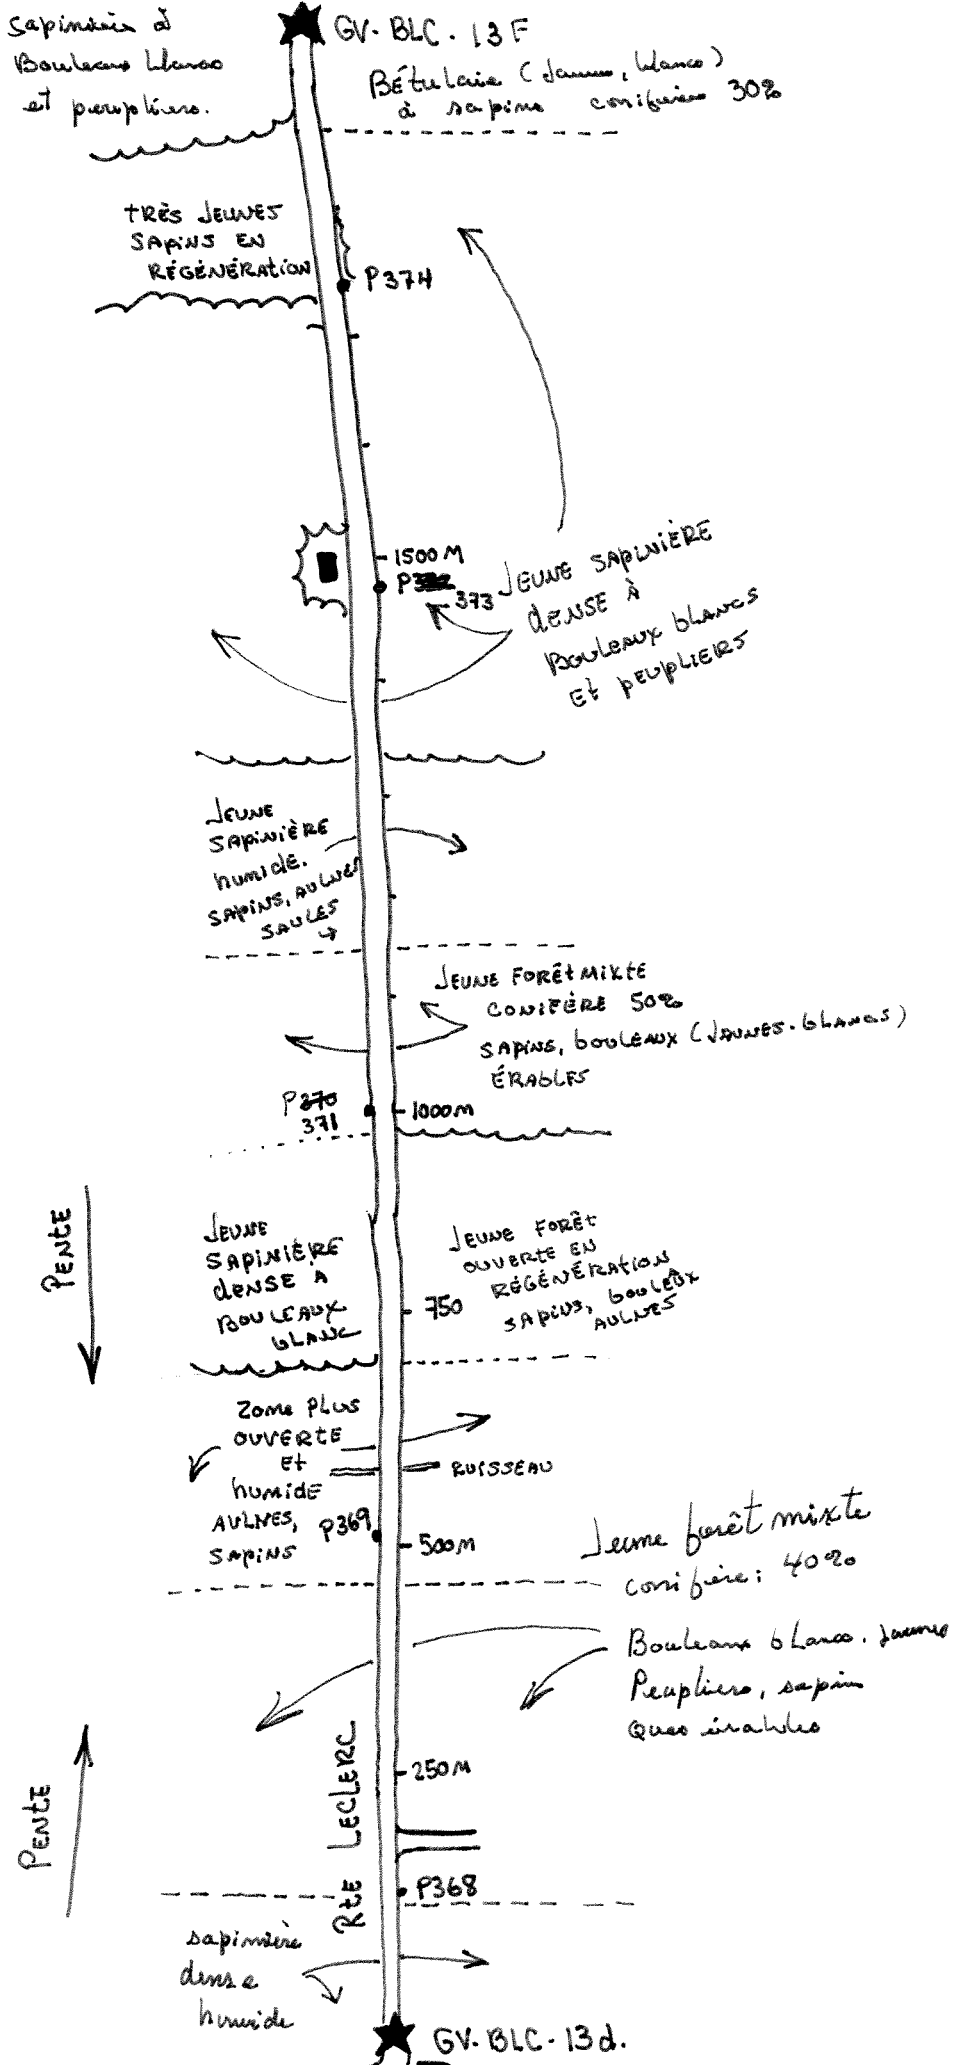 GV-BLC-13F
Sapinière à
Bouleaux blancs
et peupliers.
Bétulaie (Jaunes, blancs)
à sapins conifères 30%
TRÈS JEUNES
SAPINS EN
RÉGÉNÉRATION
P374
1500 M
P
373
JEUNE SAPINIÈRE
dENSE À
BOULEAUX blANCS
Et pEUpLIERS
JEUNE
SAPINIÈRE
humide.
SAPINS, AULNES
SAULES
JEUNE FORÊT MIXTE
CONIFÈRE 50%
SAPINS, bOULEAUX (JAUNES-blANCS)
ÉRAbLES
P370
371
1000M
PENTE
JEUNE
SAPINIÈRE
dENSE À
BOULEAUX
bLANC
JEUNE FORÊT
OUVERTE EN
RÉGÉNÉRATION
SAPINS, bOULEAUX
AULNES
750
ZONE PLUS
OUVERTE
Et
humidE
AULNES,
SAPINS
RUISSEAU
P369
500M
Jeune forêt mixte
conifère: 40%
Bouleaux blancs, jaunes
Peupliers, sapins
Ques érables
250M
PENTE
RtE LECLERC
P368
sapinière
dense
humide
GV-BLC-13d.